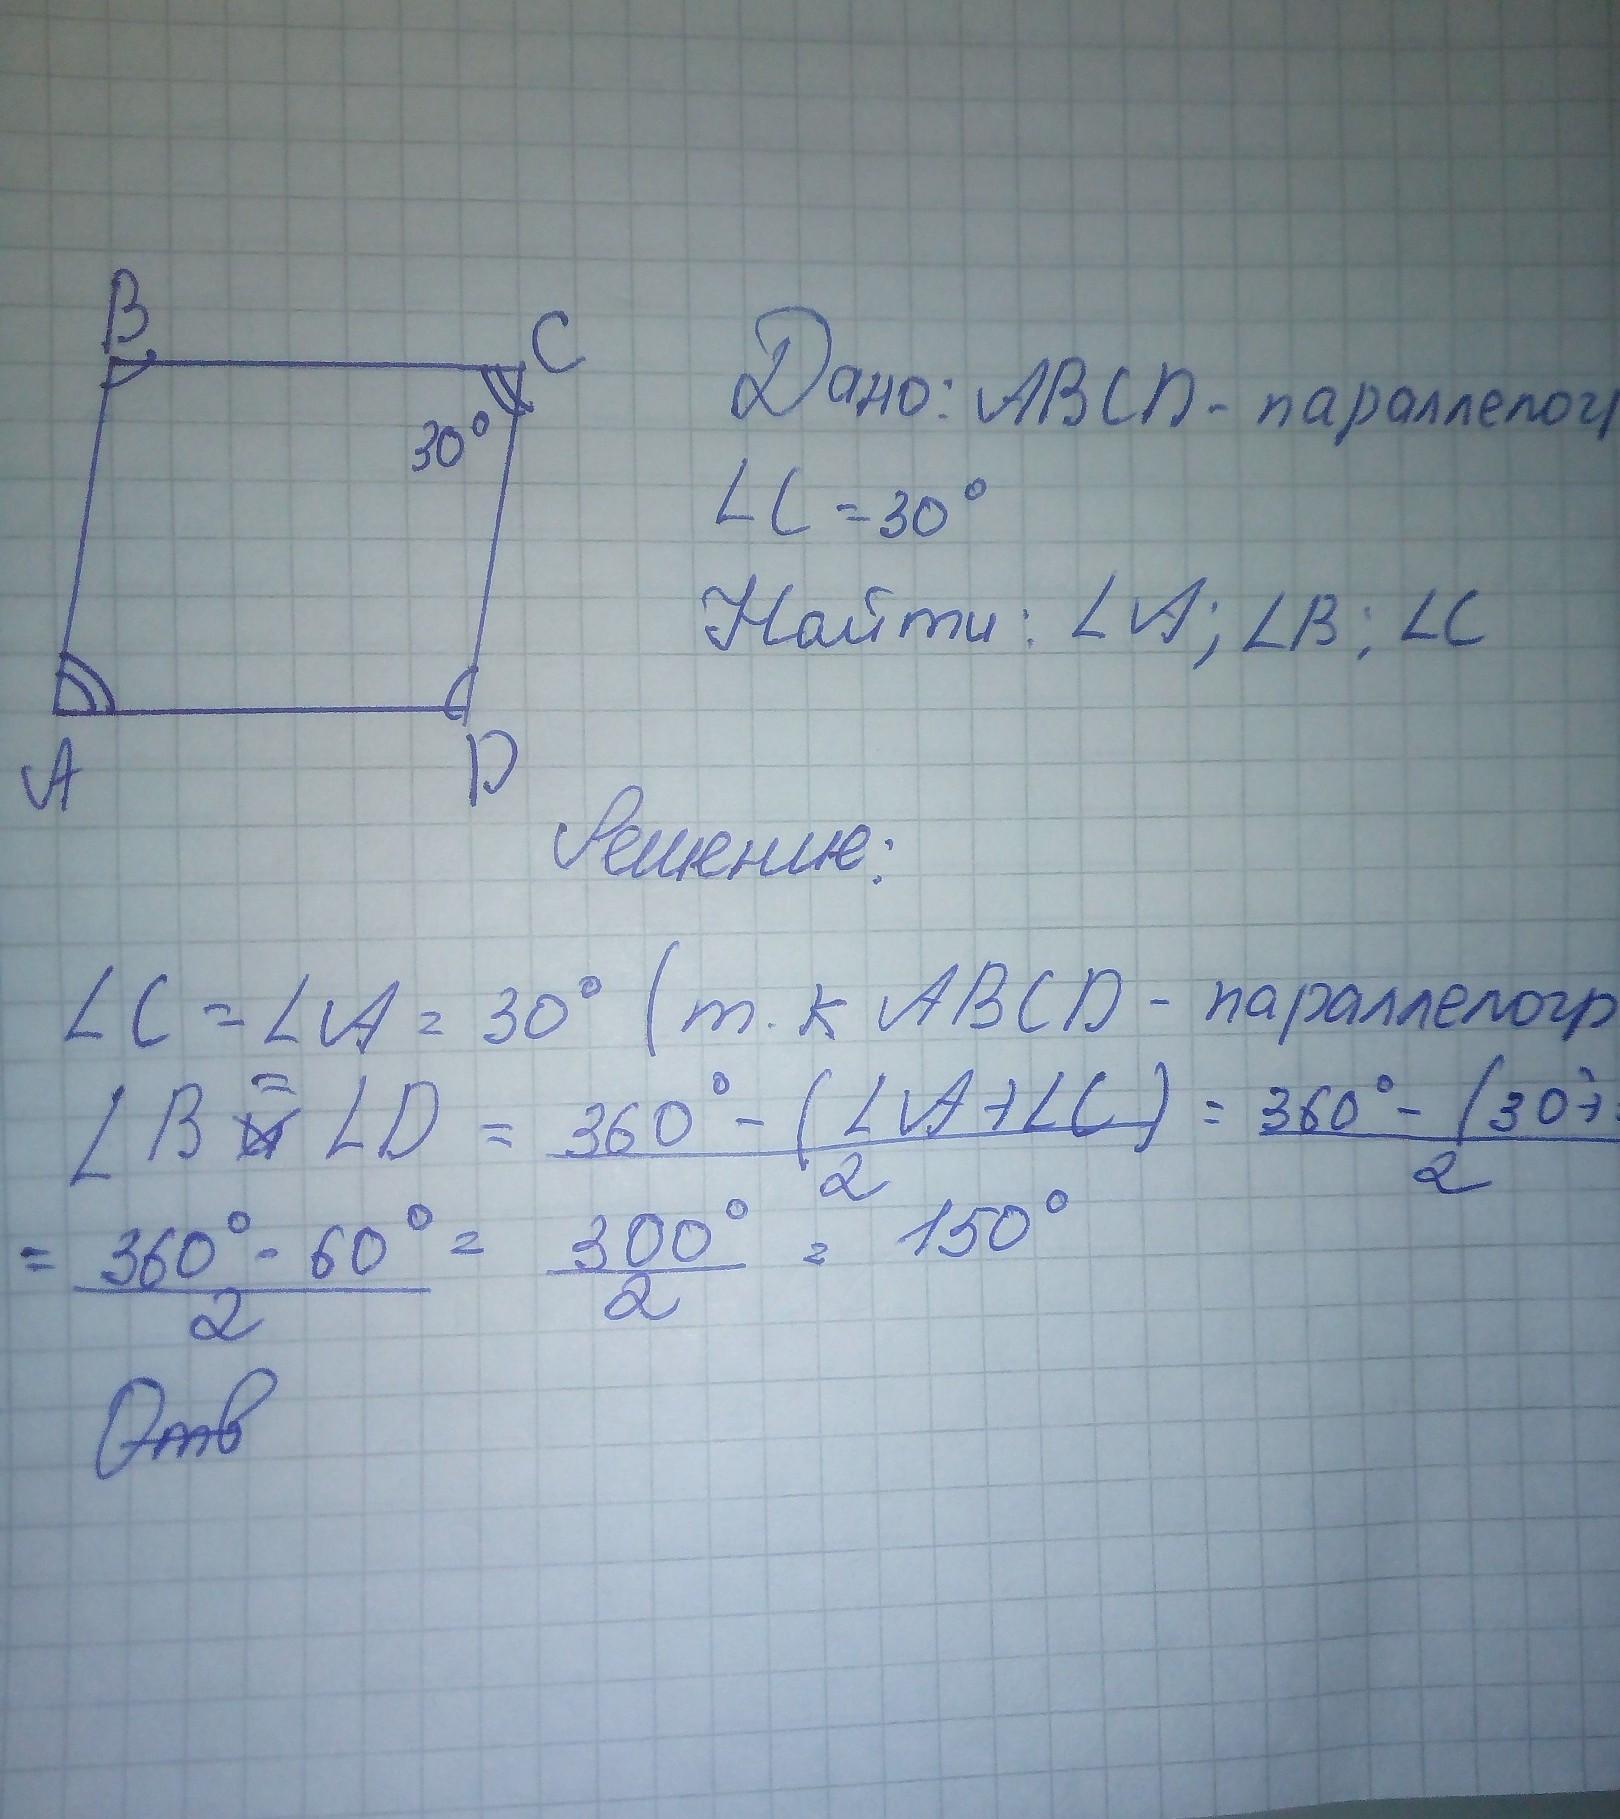 B
C
30°
A
D
Дано: ABCD - параллелогр
∠C = 30°
Найти: ∠A; ∠B; ∠C
Решение:
∠C = ∠A = 30° (т.к ABCD - параллелогр
∠B = ∠D = 360° - (∠A+∠C) / 2 = 360° - (30+ / 2
= 360° - 60° / 2 = 300° / 2 = 150°
Отв